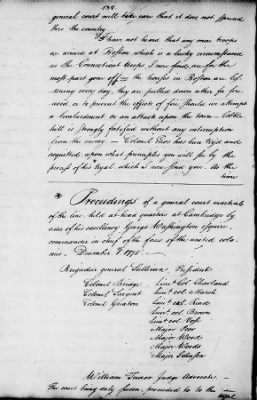 132.
general court will take care that it does not spread
thro the country
I have not heard that any more troops
are arrived at Boston, which is a lucky circumstance
as the Connecticut troops I now find, are for the
most part gone off — the houses in Boston are les-
sening every day, they are pulled down either for fire
wood, or to prevent the effects of fire, should we attempt
a bombardment or an attack upon the town — Cobble
hill is strongly fortified without any interruption
from the enemy — Colonel has been tryed and
acquitted, upon what principles you will see by the
process of his tryal, which I now send you. As the
time
Proceedings of a general court martial
of the line, held at head quarters at Cambridge by
order of his excellency George Washington esquire
commander in chief of the forces of the united colo
nies. December 1775.
Brigadier general Sullivan, President
Colonel Bridge Lieut. Col. Cleaveland
Colonel Sargent Lieut. col. March
Colonel Greaton Lieut. col. Reed
Lieut. col. Brown
Lieut. col. Vose
Major Poor
Major Woods
Major Woods
Major Johnson
William Tudor Judge Advocate.
The court being duly sworn, proceeded to the
tryal